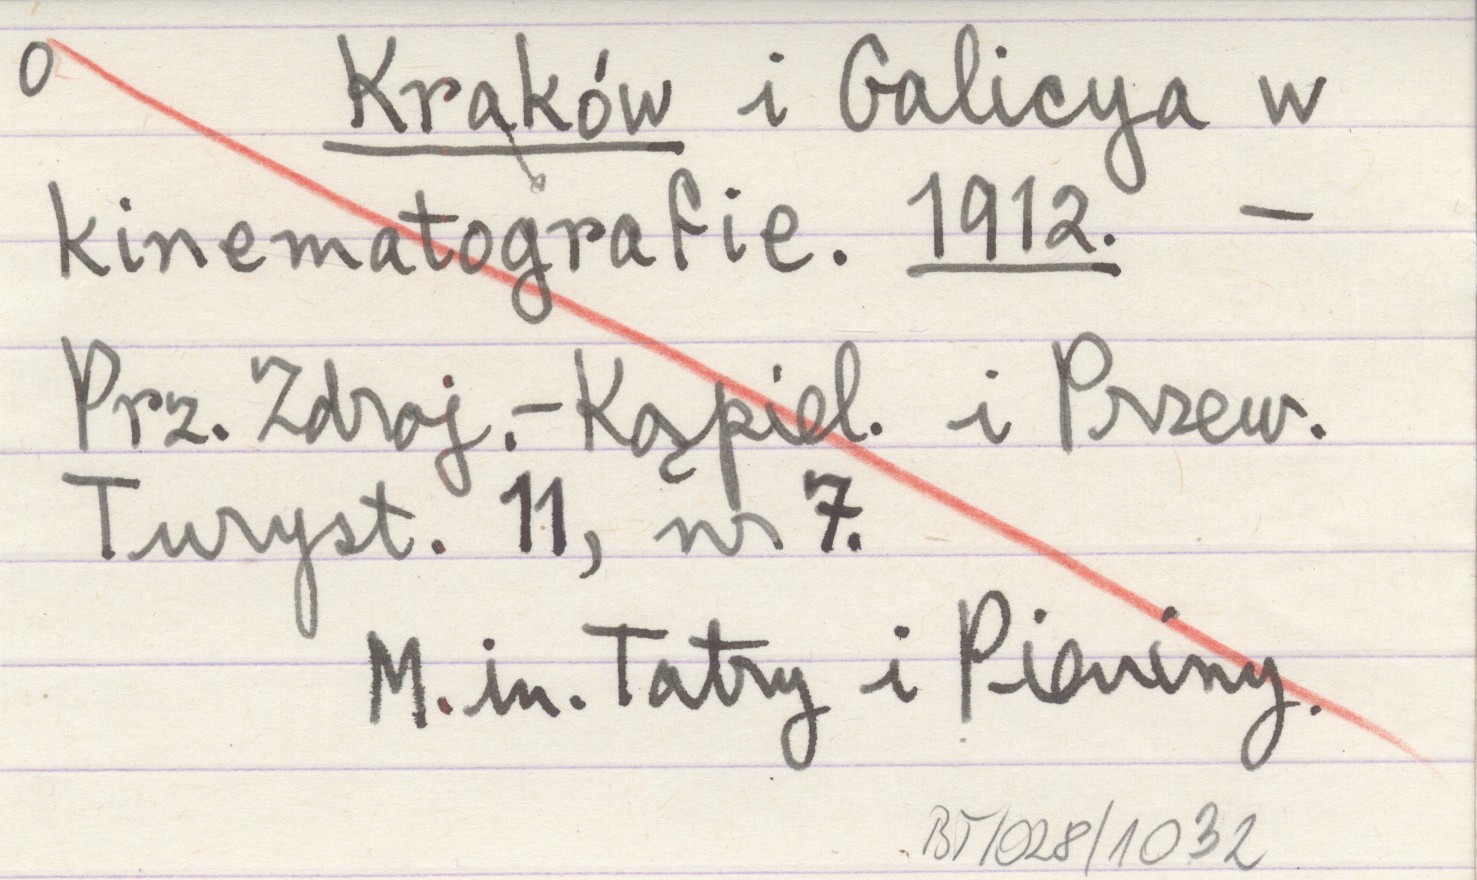 O Kraków i Galicya w
kinematografie. 1912. –
Prz. Zdroj.-Kąpiel. i Przew.
Turyst. 11, nr 7.
M.in. Tatry i Pieniny.
BT/028/1032